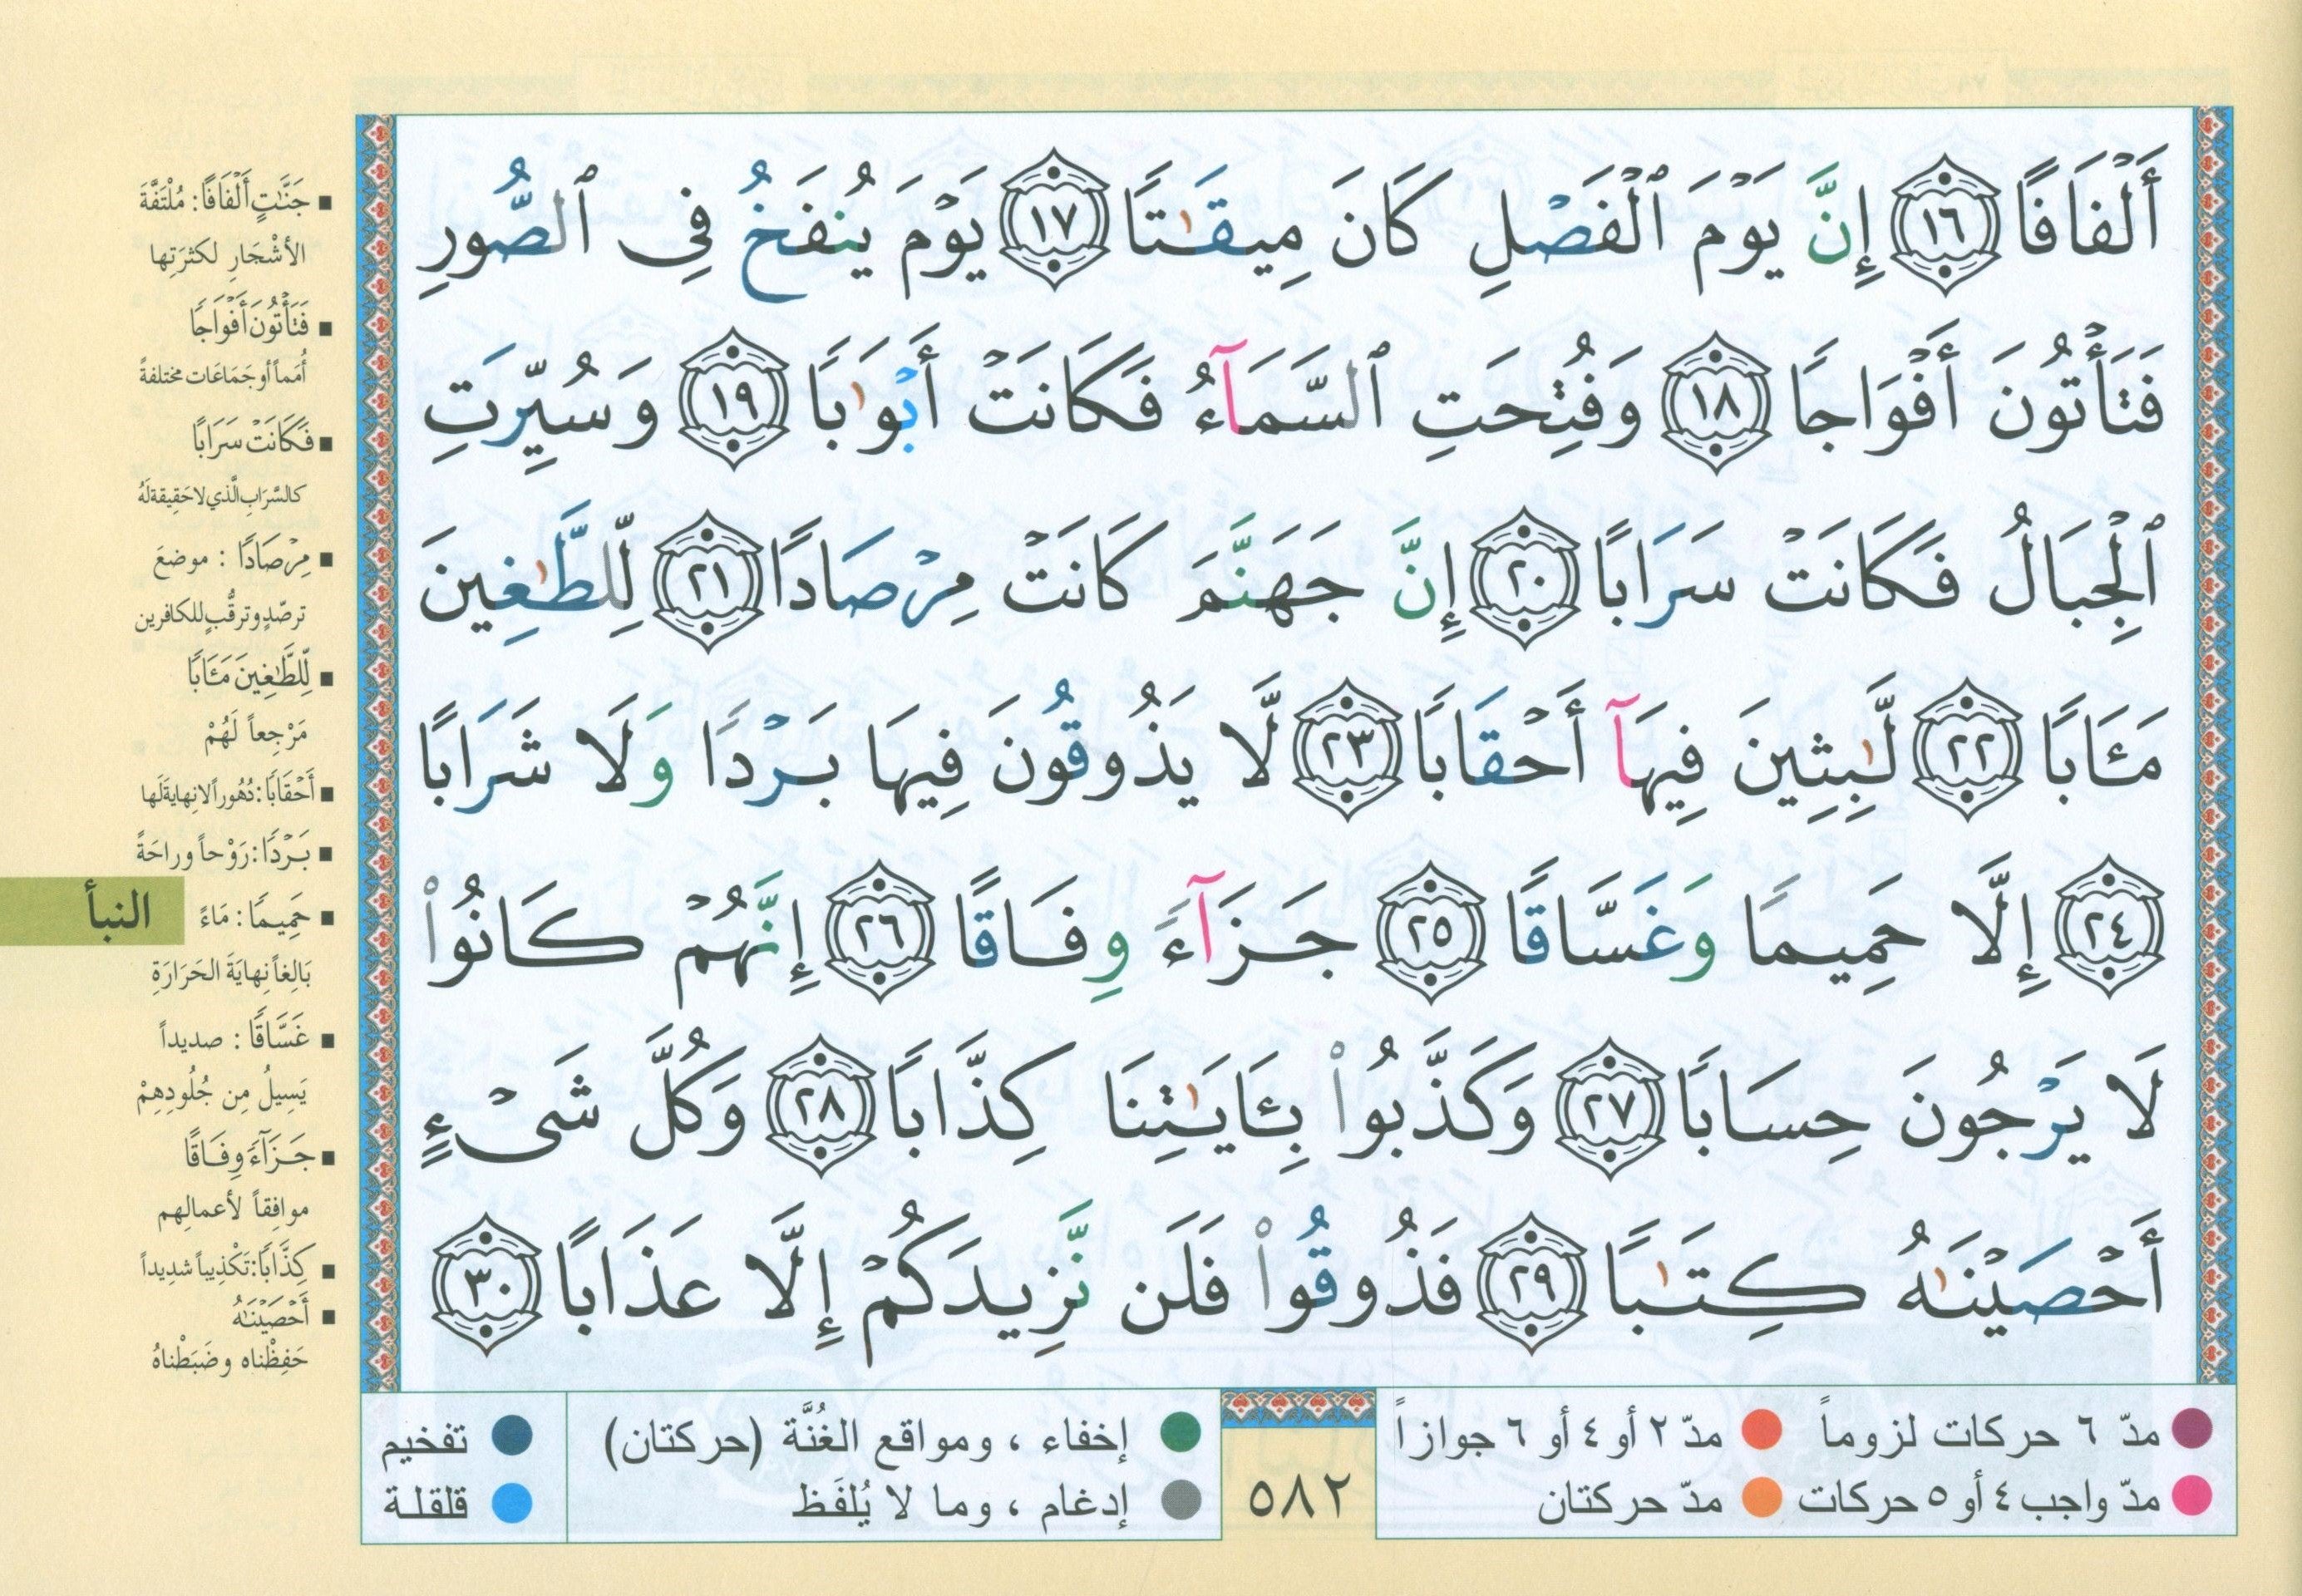 أَلْفَافًا ١٦ إِنَّ يَوْمَ ٱلْفَصْلِ كَانَ مِيقَـٰتًا ١٧ يَوْمَ يُنفَخُ فِى ٱلصُّورِ
فَتَأْتُونَ أَفْوَاجًا ١٨ وَفُتِحَتِ ٱلسَّمَآءُ فَكَانَتْ أَبْوَٰبًا ١٩ وَسُيِّرَتِ
ٱلْجِبَالُ فَكَانَتْ سَرَابًا ٢٠ إِنَّ جَهَنَّمَ كَانَتْ مِرْصَادًا ٢١ لِّلطَّـٰغِينَ
مَـَٔابًا ٢٢ لَّـٰبِثِينَ فِيهَآ أَحْقَابًا ٢٣ لَّا يَذُوقُونَ فِيهَا بَرْدًا وَلَا شَرَابًا
٢٤ إِلَّا حَمِيمًا وَغَسَّاقًا ٢٥ جَزَآءً وِفَاقًا ٢٦ إِنَّهُمْ كَانُوا۟
لَا يَرْجُونَ حِسَابًا ٢٧ وَكَذَّبُوا۟ بِـَٔايَـٰتِنَا كِذَّابًا ٢٨ وَكُلَّ شَىْءٍ
أَحْصَيْنَـٰهُ كِتَـٰبًا ٢٩ فَذُوقُوا۟ فَلَن نَّزِيدَكُمْ إِلَّا عَذَابًا ٣٠
■ جَنَّاتٍ أَلْفَافًا: مُلْتَفَّةَ
الأشْجَارِ لكثرَتِها
■ فَتَأْتُونَ أَفْوَاجًا
أُمَماً أو جَمَاعَات مختلفةً
■ فَكَانَتْ سَرَابًا
كالسَّرَابِ الَّذي لا حَقِيقة لَهُ
■ مِرْصَادًا : موضعَ
ترصّدٍ وترقُّبٍ للكافرين
■ لِّلطَّـٰغِينَ مَـَٔابًا
مَرْجِعاً لَهُمْ
■ أَحْقَابًا: دُهُوراً لا نِهاية لَها
■ بَرْدًا: رَوْحاً وراحَةً
■ حَمِيمًا: مَاءً
بَالِغاً نِهايَةَ الحَرَارَةِ
■ غَسَّاقًا : صديداً
يَسِيلُ مِن جُلُودِهِمْ
■ جَزَآءً وِفَاقًا
موافِقاً لأعمالِهم
■ كِذَّابًا: تَكْذِيباً شدِيداً
■ أَحْصَيْنَـٰهُ
حَفِظْناه وضَبَطْناهُ
النبأ
مدّ ٦ حركات لزوماً مدّ ٢ أو ٤ أو ٦ جوازاً
مدّ واجب ٤ أو ٥ حركات مدّ حركتان
٥٨٢
إخفاء ، ومواقع الغُنَّة (حركتان)
إدغام ، وما لا يُلفَظ
تفخيم
قلقلة